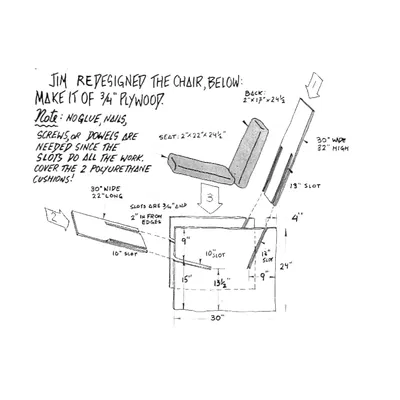 JIM REDESIGNED THE CHAIR, BELOW:
MAKE IT OF 3/4" PLYWOOD.
Note: NO GLUE, NAILS,
SCREWS, OR DOWELS ARE
NEEDED SINCE THE
SLOTS DO ALL THE WORK.
COVER THE 2 POLYURETHANE
CUSHIONS!
BACK:
2"X17"X24½
SEAT: 2"X22"X24½"
30" WIDE
32" HIGH
18" SLOT
30" WIDE
22" LONG
SLOTS ARE 3/4" AND
2" IN FROM
EDGES
3
4"
2
10" SLOT
9"
10"
SLOT
SLOT
15"
13½"
9"
24"
30"